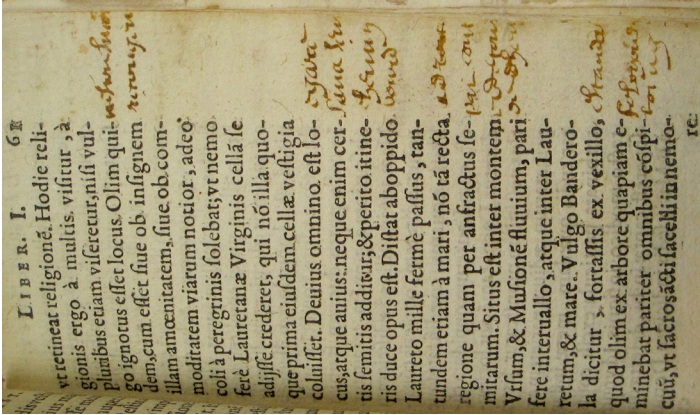 LIBER. I. 61
vt retineat religionē. Hodie reli-
gionis ergo à multis visitur, à
pluribus etiam viseretur, nisi vul-
go ignotus esset locus. Olim qui-
dem, cum esset siue ob insignem
illam amœnitatem, siue ob com-
moditatem viarum notior, adeo
coli à peregrinis solebat; vt nemo
ferè Lauretanæ Virginis cellā se
adijsse crederet, qui nō illa quo-
que prima eiusdem cellæ vestigia
coluisset. Deuius omnino est lo-
cus, atque auius: neque enim cer-
tis semitis aditur; & perito itine-
ris duce opus est. Distat ab oppido
Laureto mille fermè passus, tan-
tundem etiam à mari, nō tā recta
regione quam per anfractus se-
mitarum. Situs est inter montem
Vrsum, & Musionē fluuium, pari
fere interuallo, atque inter Lau-
retum, & mare. Vulgo Bandero-
la dicitur, fortassis ex vexillo,
quod olim ex arbore quapiam e-
minebat pariter omnibus cōspi-
cuū, vt sacrosācti sacelli in nemo-
re